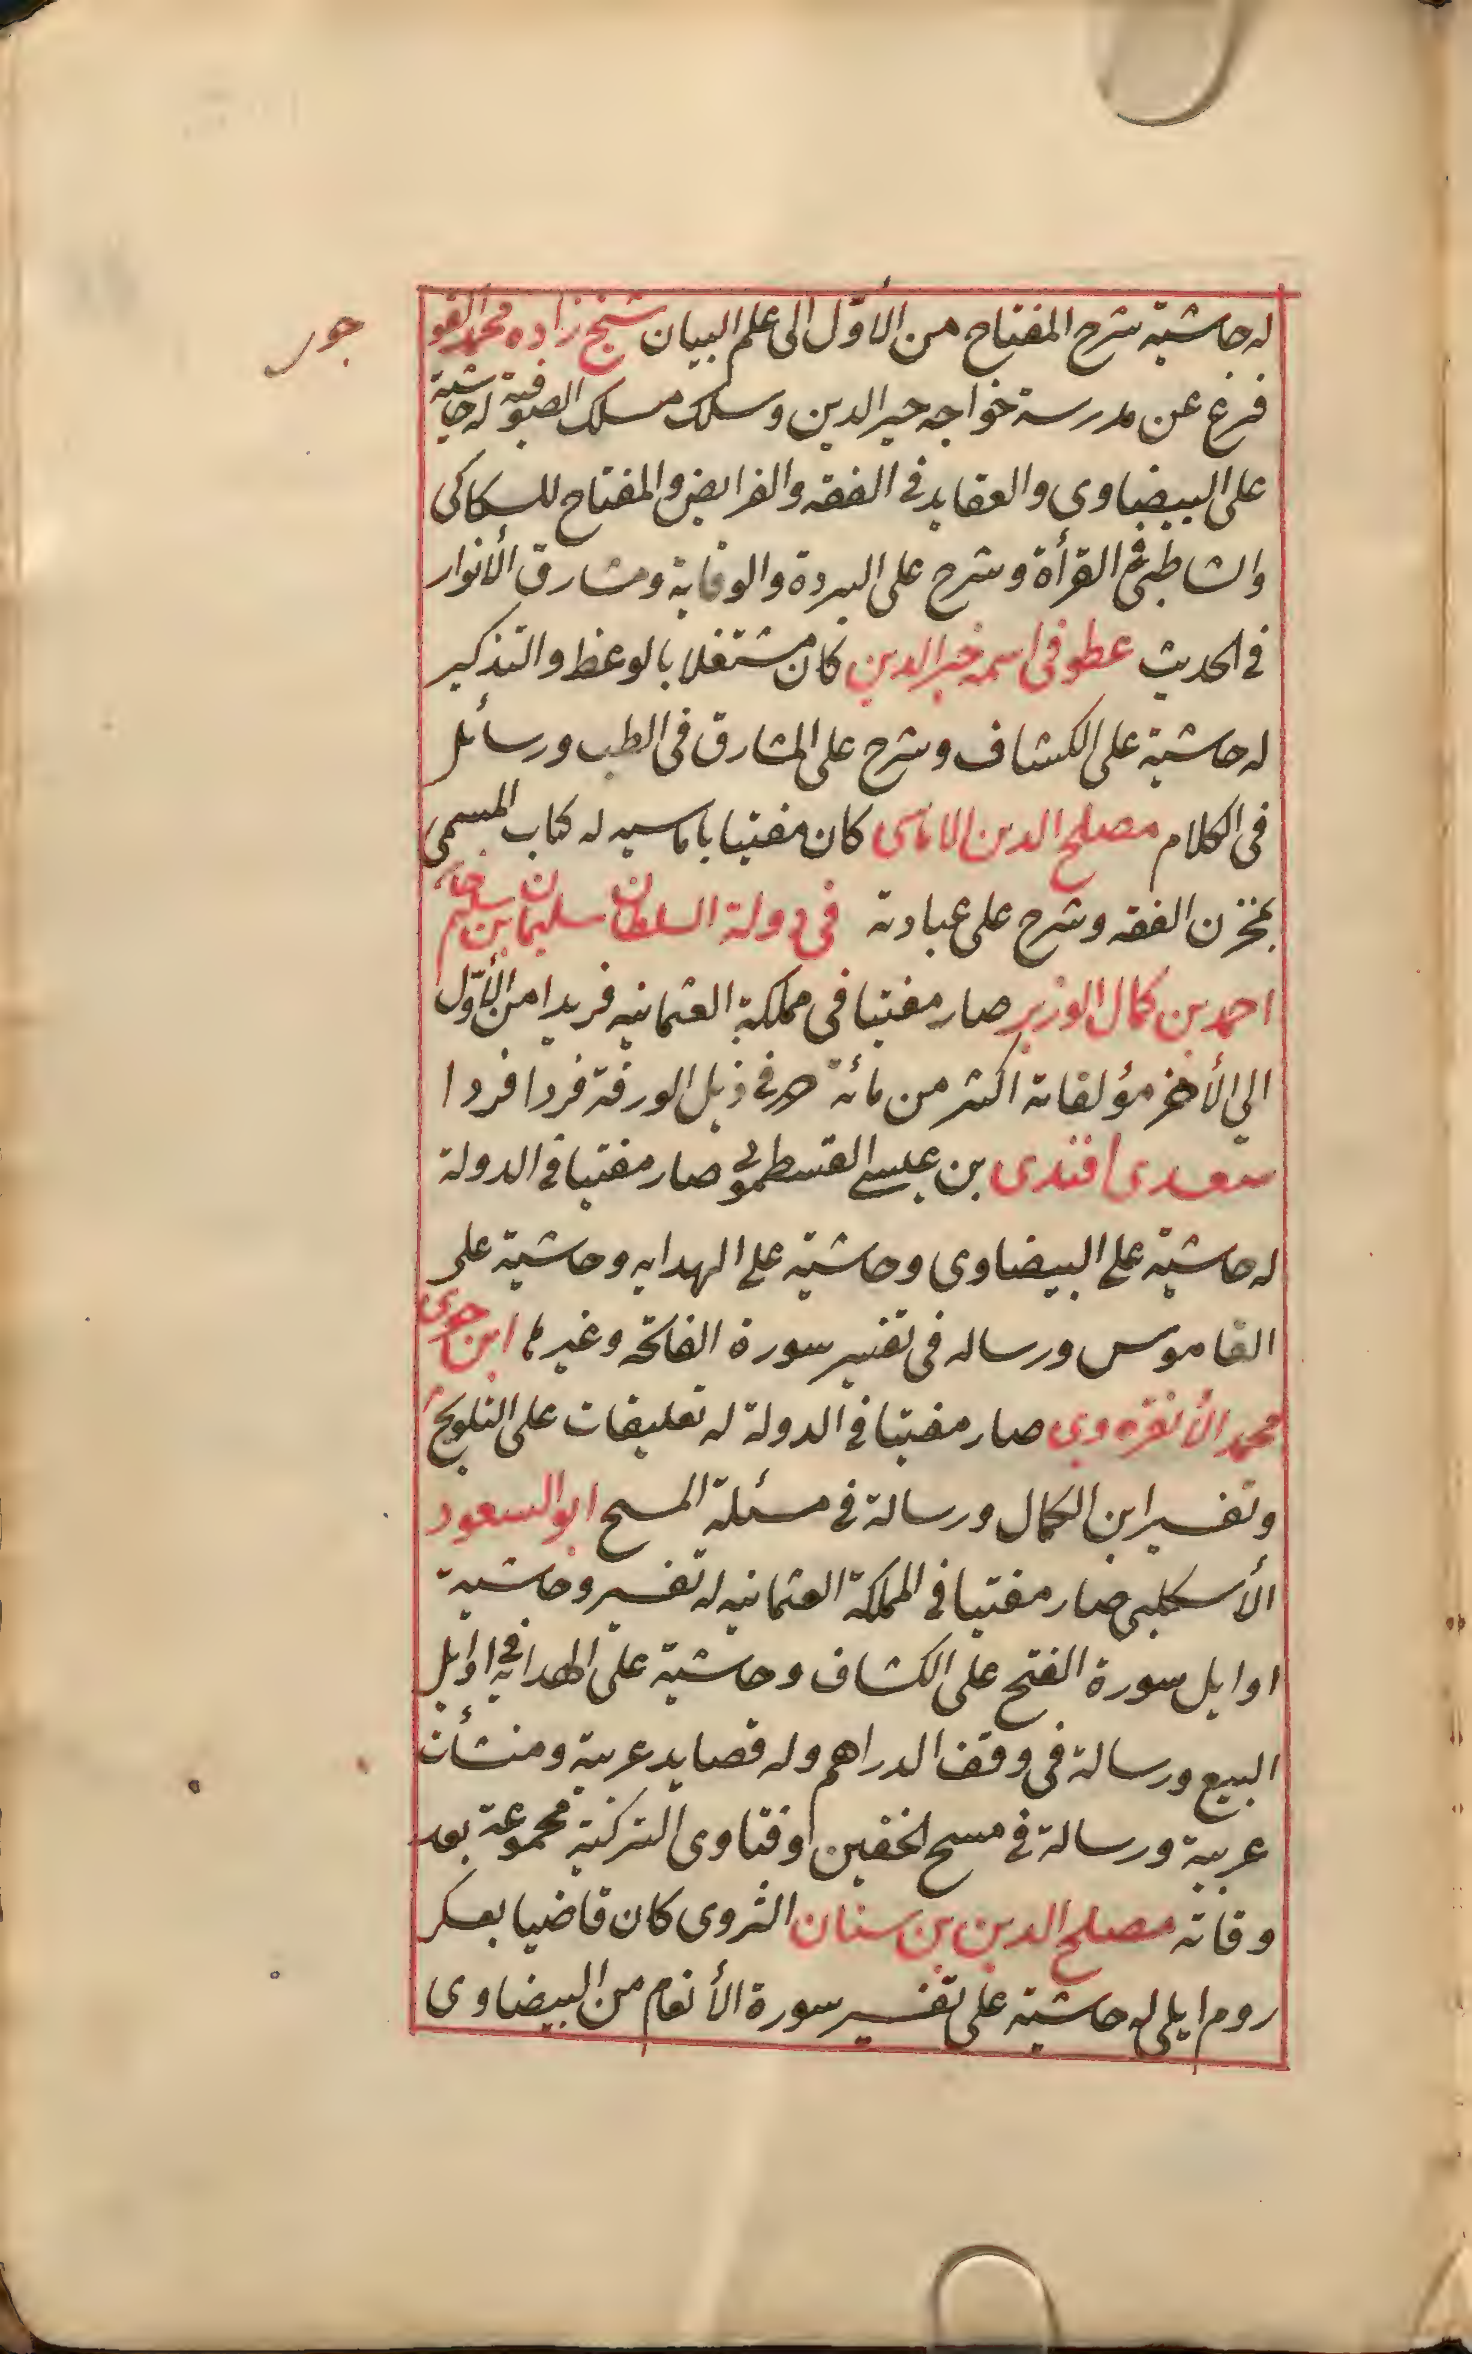 له حاشية شرح المفتاح من الأوّل الى علم البيان شيخ زاده محمد القو
جور
فرغ عن مدرسة خواجه خير الدين وسلك مسلك الصوفية له حاشية
على البيضاوى والعقايد فى الفقه والفرايض والمفتاح للسكاكى
والشاطبى فى القرأة وشرح على البردة والوقاية ومشارق الأنوار
فى الحديث عطوفى اسمه خير الدين كان مشتغلا بالوعظ والتذكير
له حاشية على الكشاف وشرح على المشارق فى الطب ورسائل
فى الكلام مصلح الدين الاماسى كان مفتيا باماسيه له كتاب المسمى
بمخزن الفقه وشرح على عبادته فى دولة السلطان سليمان بن سليم خان
احمد بن كمال الوزير صار مفتيا فى مملكة العثمانيه فريدا من الأوّل
الى الأخر مؤلفاته اكثر من مائة فى ذيل الورقة فردا فردا
سعدى افندى بن عيسى القسطمونى صار مفتيا فى الدولة
له حاشية على البيضاوى وحاشية على الهدايه وحاشية على
القاموس ورساله فى تفسير سورة الفاتحه وغيرها ابن جوى
محمد الأنقره وى صار مفتيا فى الدولة له تعليقات على التلويح
وتفسير ابن الكمال ورسالة فى مسئلة المسح ابو السعود
الأسكليبى صار مفتيا فى المملكة العثمانيه له تفسير وحاشية
اوايل سورة الفتح على الكشاف وحاشية على الهداية فى اوايل
البيع ورسالة فى وقف الدراهم وله قصايد عربية ومنشأت
عربية ورسالة فى مسح الخفين وفتاوى التركية مجموعة بعد
وفاته مصلح الدين بن سنان الثروى كان قاضيا بعسكر
روم ايلى له حاشية على تفسير سورة الأنعام من البيضاوى